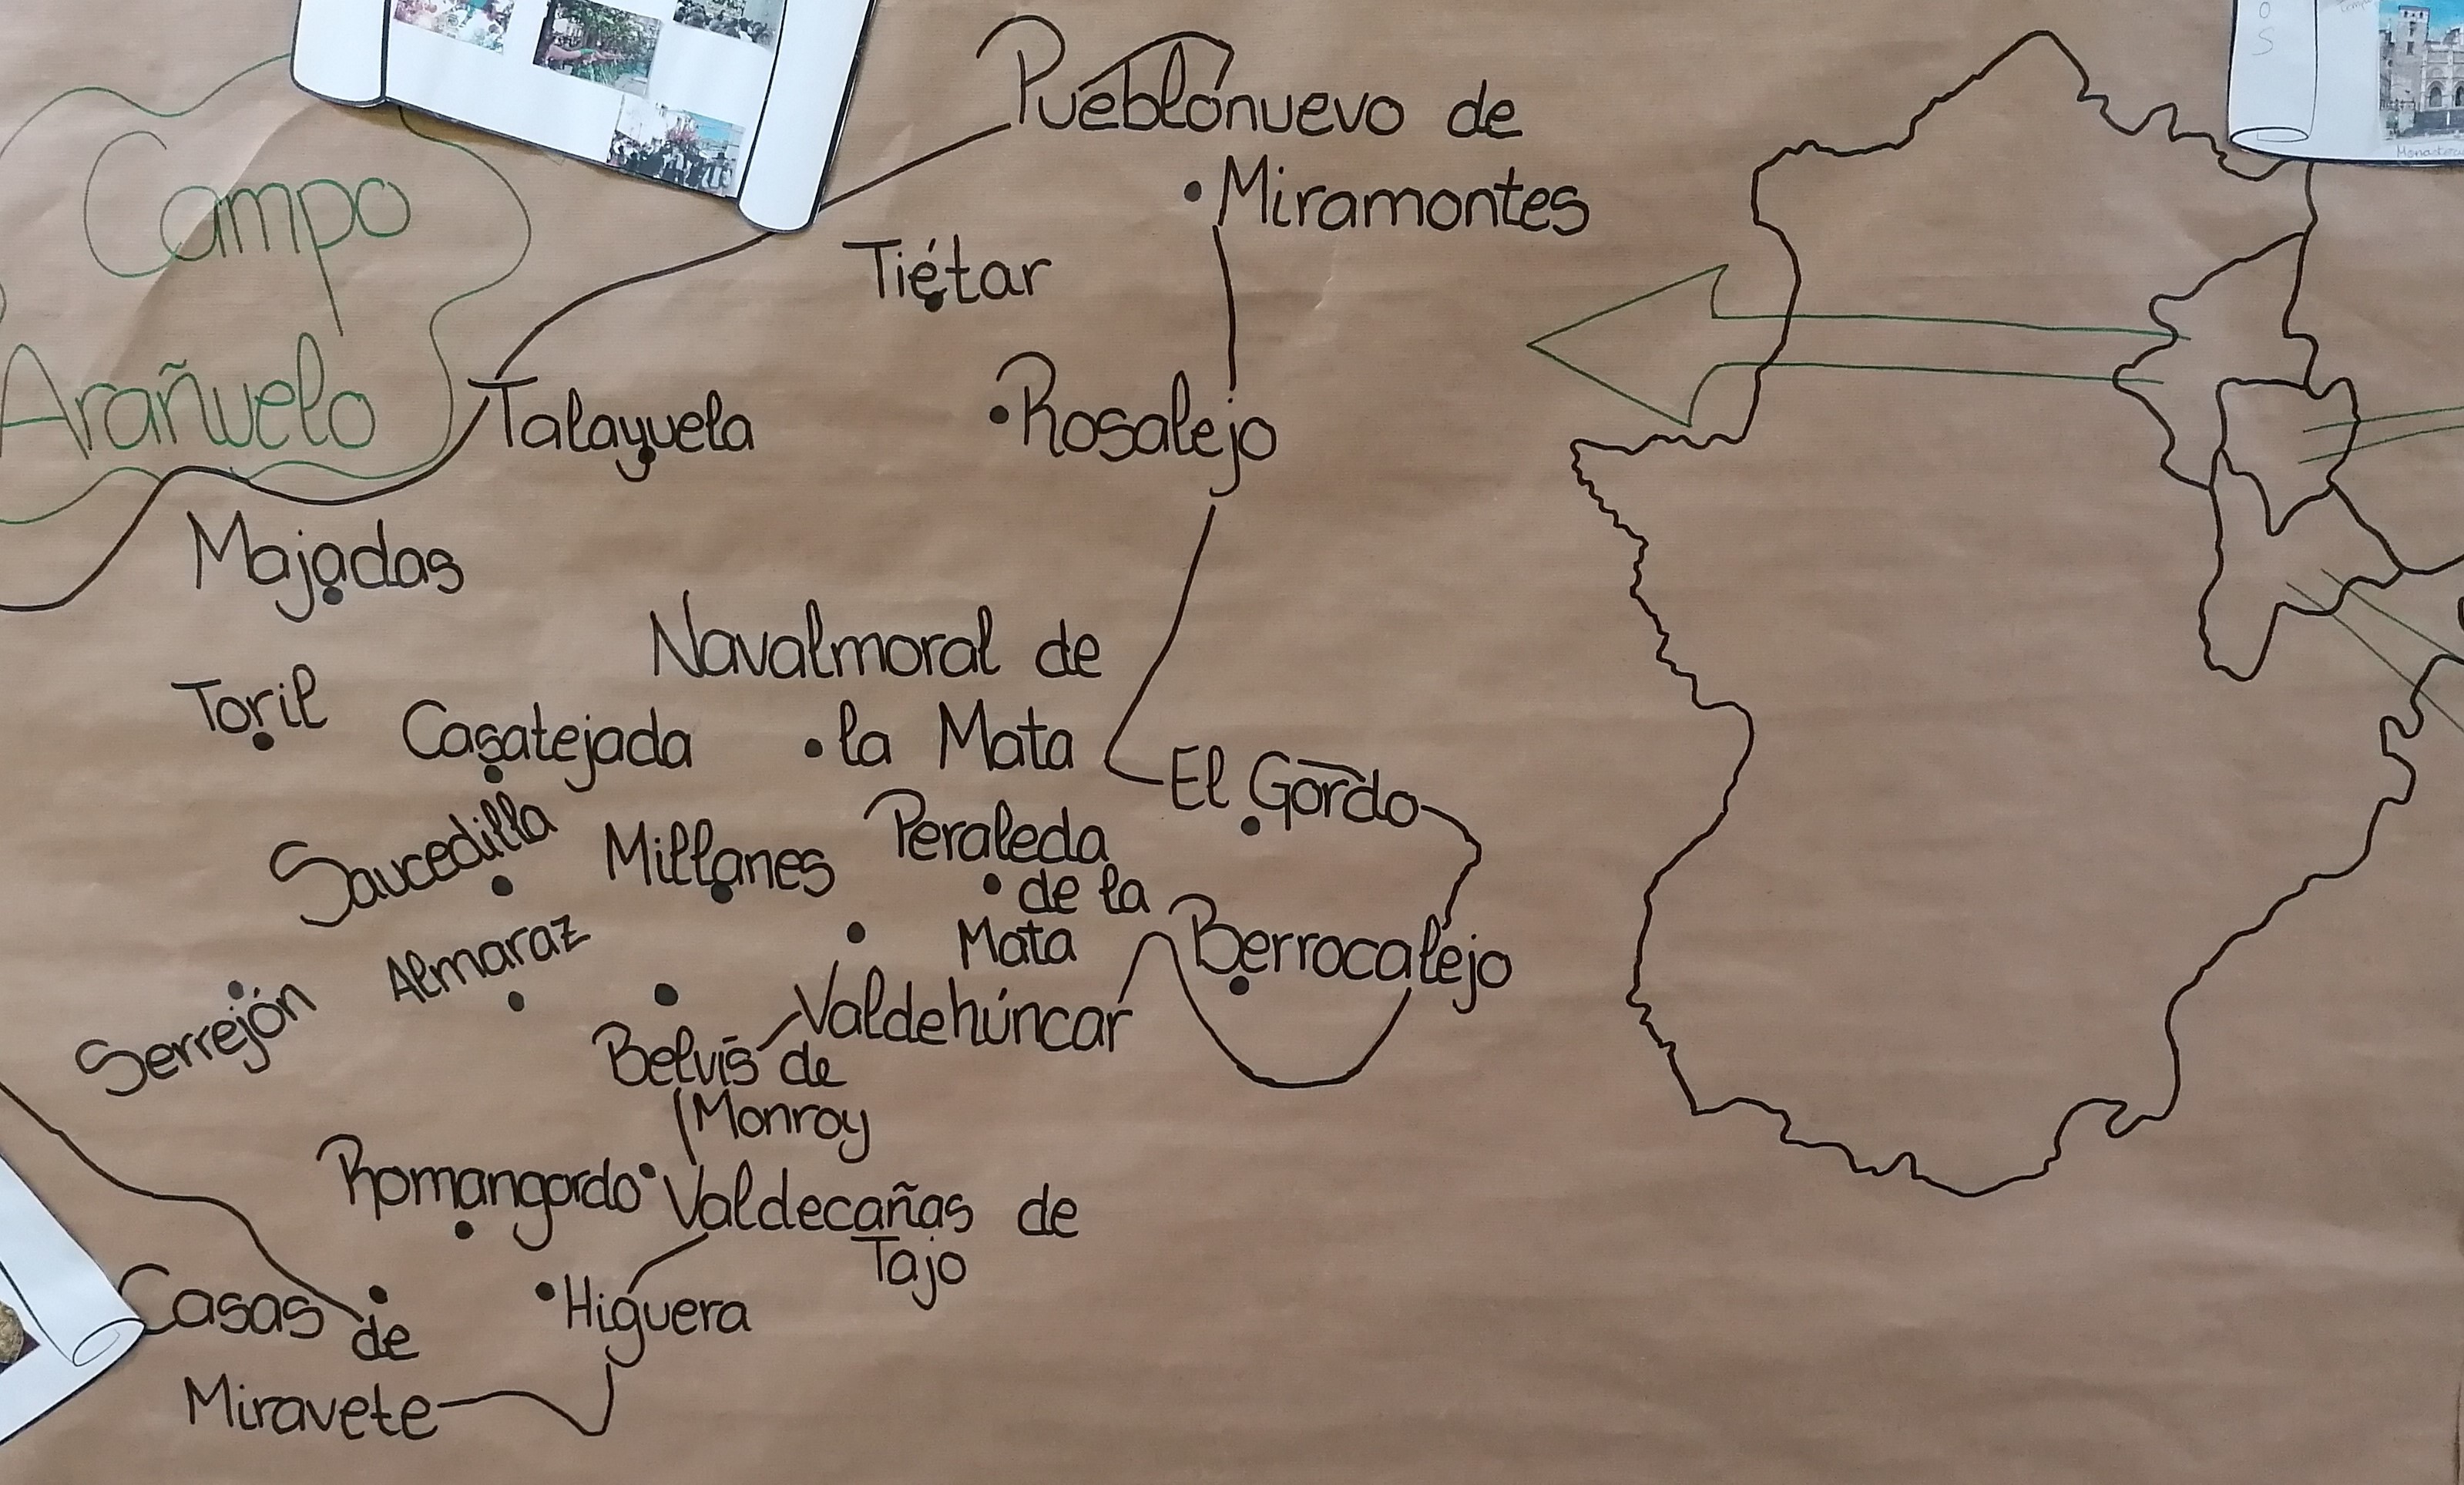 Campo
Arañuelo
Pueblonuevo de
Miramontes
Tiétar
Talayuela
Rosalejo
Majadas
Navalmoral de
la Mata
Toril
Casatejada
El Gordo
Saucedilla
Millanes
Peraleda
de la
Mata
Berrocalejo
Almaraz
Serrejón
Valdehúncar
Belvís de
Monroy
Romangordo
Valdecañas de
Tajo
Casas de
Miravete
Higuera
O
S